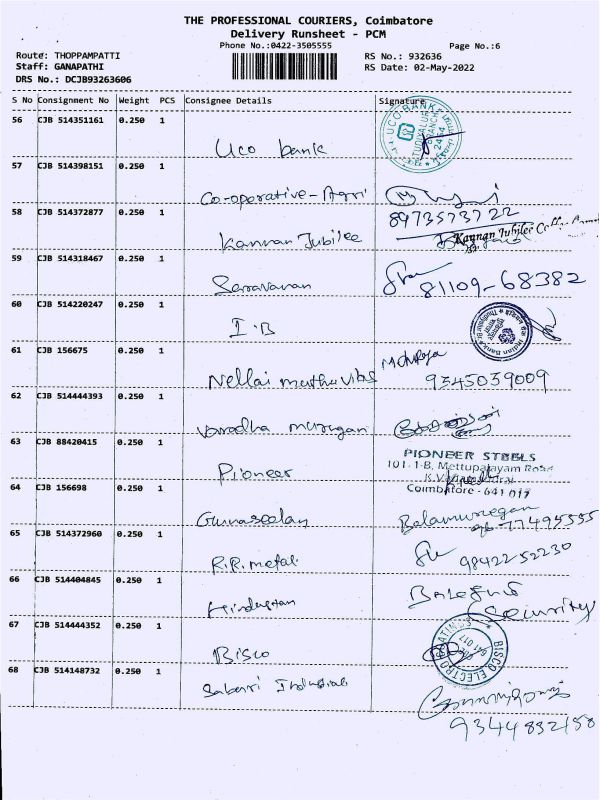 THE PROFESSIONAL COURIERS, Coimbatore
Delivery Runsheet - PCM
Phone No.:0422-3505555
Page No.:6
Route: THOPPAMPATTI
Staff: GANAPATHI
DRS No.: DCJB93263606
RS No.: 932636
RS Date: 02-May-2022
S No Consignment No Weight PCS Consignee Details Signature
56 CJB 514351161 0.250 1
UCO BANK
Uco bank
57 CJB 514398151 0.250 1
Co-operative-Agri
58 CJB 514372877 0.250 1 8973573722
Kannan Jubilee Kannan Jubilee
59 CJB 514318467 0.250 1
Saravanan 81109-68382
60 CJB 514220247 0.250 1
I.B Indian Bank
61 CJB 156675 0.250 1
Nellai muthu vilas 9345039009
62 CJB 514444393 0.250 1
Varadha murugan
63 CJB 88420415 0.250 1 PIONEER STEELS
101-1-B, Mettupalayam Road
Pioneer
64 CJB 156698 0.250 1 Coimbatore - 641 017
Gunaseelan Balamurugan
65 CJB 514372960 0.250 1
R.R. metal 98422 52230
66 CJB 514404845 0.250 1
Hindustan Security
67 CJB 514444352 0.250 1
BISCO ELECTRO PLATINGS
641 017
Bisco
68 CJB 514148732 0.250 1
Sabari Industrial
9344832158